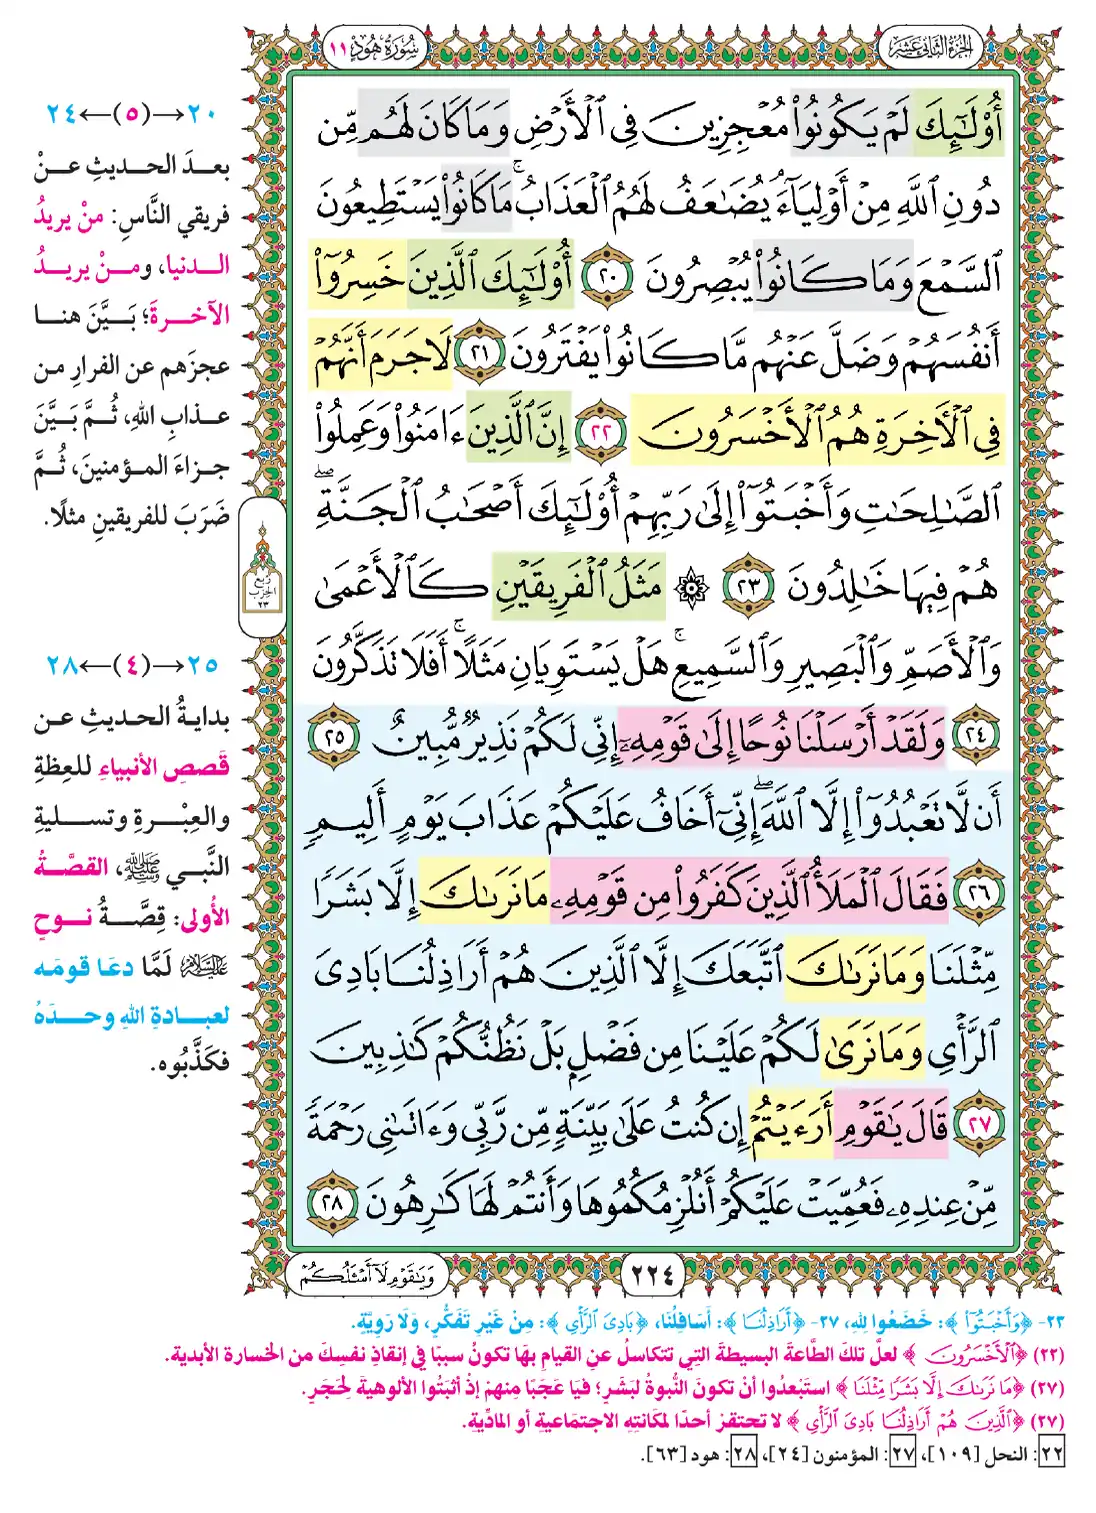 الجزء الثاني عشر
سُورَةُ هُودٍ ١١
أُوْلَٰٓئِكَ لَمْ يَكُونُواْ مُعْجِزِينَ فِى ٱلْأَرْضِ وَمَا كَانَ لَهُم مِّن
دُونِ ٱللَّهِ مِنْ أَوْلِيَآءَۘ يُضَٰعَفُ لَهُمُ ٱلْعَذَابُۚ مَا كَانُواْ يَسْتَطِيعُونَ
ٱلسَّمْعَ وَمَا كَانُواْ يُبْصِرُونَ ٢٠ أُوْلَٰٓئِكَ ٱلَّذِينَ خَسِرُوٓاْ
أَنفُسَهُمْ وَضَلَّ عَنْهُم مَّا كَانُواْ يَفْتَرُونَ ٢١ لَا جَرَمَ أَنَّهُمْ
فِى ٱلْأَخِرَةِ هُمُ ٱلْأَخْسَرُونَ ٢٢ إِنَّ ٱلَّذِينَ ءَامَنُواْ وَعَمِلُواْ
ٱلصَّٰلِحَٰتِ وَأَخْبَتُوٓاْ إِلَىٰ رَبِّهِمْ أُوْلَٰٓئِكَ أَصْحَٰبُ ٱلْجَنَّةِۖ
هُمْ فِيهَا خَٰلِدُونَ ٢٣ ۞ مَثَلُ ٱلْفَرِيقَيْنِ كَٱلْأَعْمَىٰ
وَٱلْأَصَمِّ وَٱلْبَصِيرِ وَٱلسَّمِيعِۚ هَلْ يَسْتَوِيَانِ مَثَلًاۚ أَفَلَا تَذَكَّرُونَ
٢٤ وَلَقَدْ أَرْسَلْنَا نُوحًا إِلَىٰ قَوْمِهِۦٓ إِنِّى لَكُمْ نَذِيرٌ مُّبِينٌ ٢٥
أَن لَّا تَعْبُدُوٓاْ إِلَّا ٱللَّهَۖ إِنِّىٓ أَخَافُ عَلَيْكُمْ عَذَابَ يَوْمٍ أَلِيمٍ
٢٦ فَقَالَ ٱلْمَلَأُ ٱلَّذِينَ كَفَرُواْ مِن قَوْمِهِۦ مَا نَرَىٰكَ إِلَّا بَشَرًا
مِّثْلَنَا وَمَا نَرَىٰكَ ٱتَّبَعَكَ إِلَّا ٱلَّذِينَ هُمْ أَرَاذِلُنَا بَادِىَ
ٱلرَّأْىِ وَمَا نَرَىٰ لَكُمْ عَلَيْنَا مِن فَضْلٍۭ بَلْ نَظُنُّكُمْ كَٰذِبِينَ
٢٧ قَالَ يَٰقَوْمِ أَرَءَيْتُمْ إِن كُنتُ عَلَىٰ بَيِّنَةٍ مِّن رَّبِّى وَءَاتَىٰنِى رَحْمَةً
مِّنْ عِندِهِۦ فَعُمِّيَتْ عَلَيْكُمْ أَنُلْزِمُكُمُوهَا وَأَنتُمْ لَهَا كَٰرِهُونَ ٢٨
٢٢٤
وَيَٰقَوْمِ لَآ أَسْـَٔلُكُمْ
٢٠→(٥)←٢٤
بعدَ الحديثِ عنْ
فريقي النَّاسِ: منْ يريدُ
الدنيا، ومنْ يريدُ
الآخرةَ؛ بَيَّنَ هنا
عجزَهم عن الفرارِ من
عذابِ اللهِ، ثُمَّ بَيَّنَ
جزاءَ المؤمنينَ، ثُمَّ
ضَرَبَ للفريقينِ مثلًا.
ربع
الحزب
٢٣
٢٥→(٤)←٢٨
بدايةُ الحديثِ عن
قَصصِ الأنبياءِ للعِظةِ
والعِبْرةِ وتسليةِ
النَّبي ﷺ، القصَّةُ
الأُولى: قِصَّةُ نوحٍ
عليه السلام لَمَّا دعَا قومَه
لعبادةِ اللهِ وحدَهُ
فكَذَّبُوه.
٢٣- ﴿وَأَخْبَتُوٓاْ﴾: خَضَعُوا للهِ، ٢٧- ﴿أَرَاذِلُنَا﴾: أَسَافِلُنَا، ﴿بَادِىَ ٱلرَّأْىِ﴾: مِنْ غَيْرِ تَفَكُّرٍ، وَلَا رَوِيَّةٍ.
(٢٢) ﴿ٱلْأَخْسَرُونَ﴾ لعلَّ تلكَ الطَّاعةَ البسيطةَ التِي تتكاسلُ عنِ القيامِ بهَا تكونُ سببًا فِي إنقاذِ نفسِكَ من الخسارة الأبدية.
(٢٧) ﴿مَا نَرَىٰكَ إِلَّا بَشَرًا مِّثْلَنَا﴾ استَبْعدُوا أنْ تكونَ النُّبوةُ لبَشَرٍ؛ فيَا عَجَبًا مِنهمْ إذْ أثبتُوا الألوهيةَ لِحَجَرٍ.
(٢٧) ﴿ٱلَّذِينَ هُمْ أَرَاذِلُنَا بَادِىَ ٱلرَّأْىِ﴾ لا تحتقرْ أحدًا لمكانتِهِ الاجتماعيةِ أو المادِّيةِ.
٢٢: النحل [١٠٩]، ٢٧: المؤمنون [٢٤]، ٢٨: هود [٦٣].